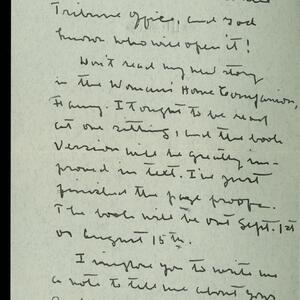 Tribune office, and God
knows who will open it!
Don't read my new story
in the Woman's Home Companion,
Fanny. It ought to be read
at one sitting, and the book
version will be greatly im-
proved in text. I've just
finished the page proofs.
The book will be out Sept. 1st
or August 15th.
I implore you to write me
a note to tell me about your